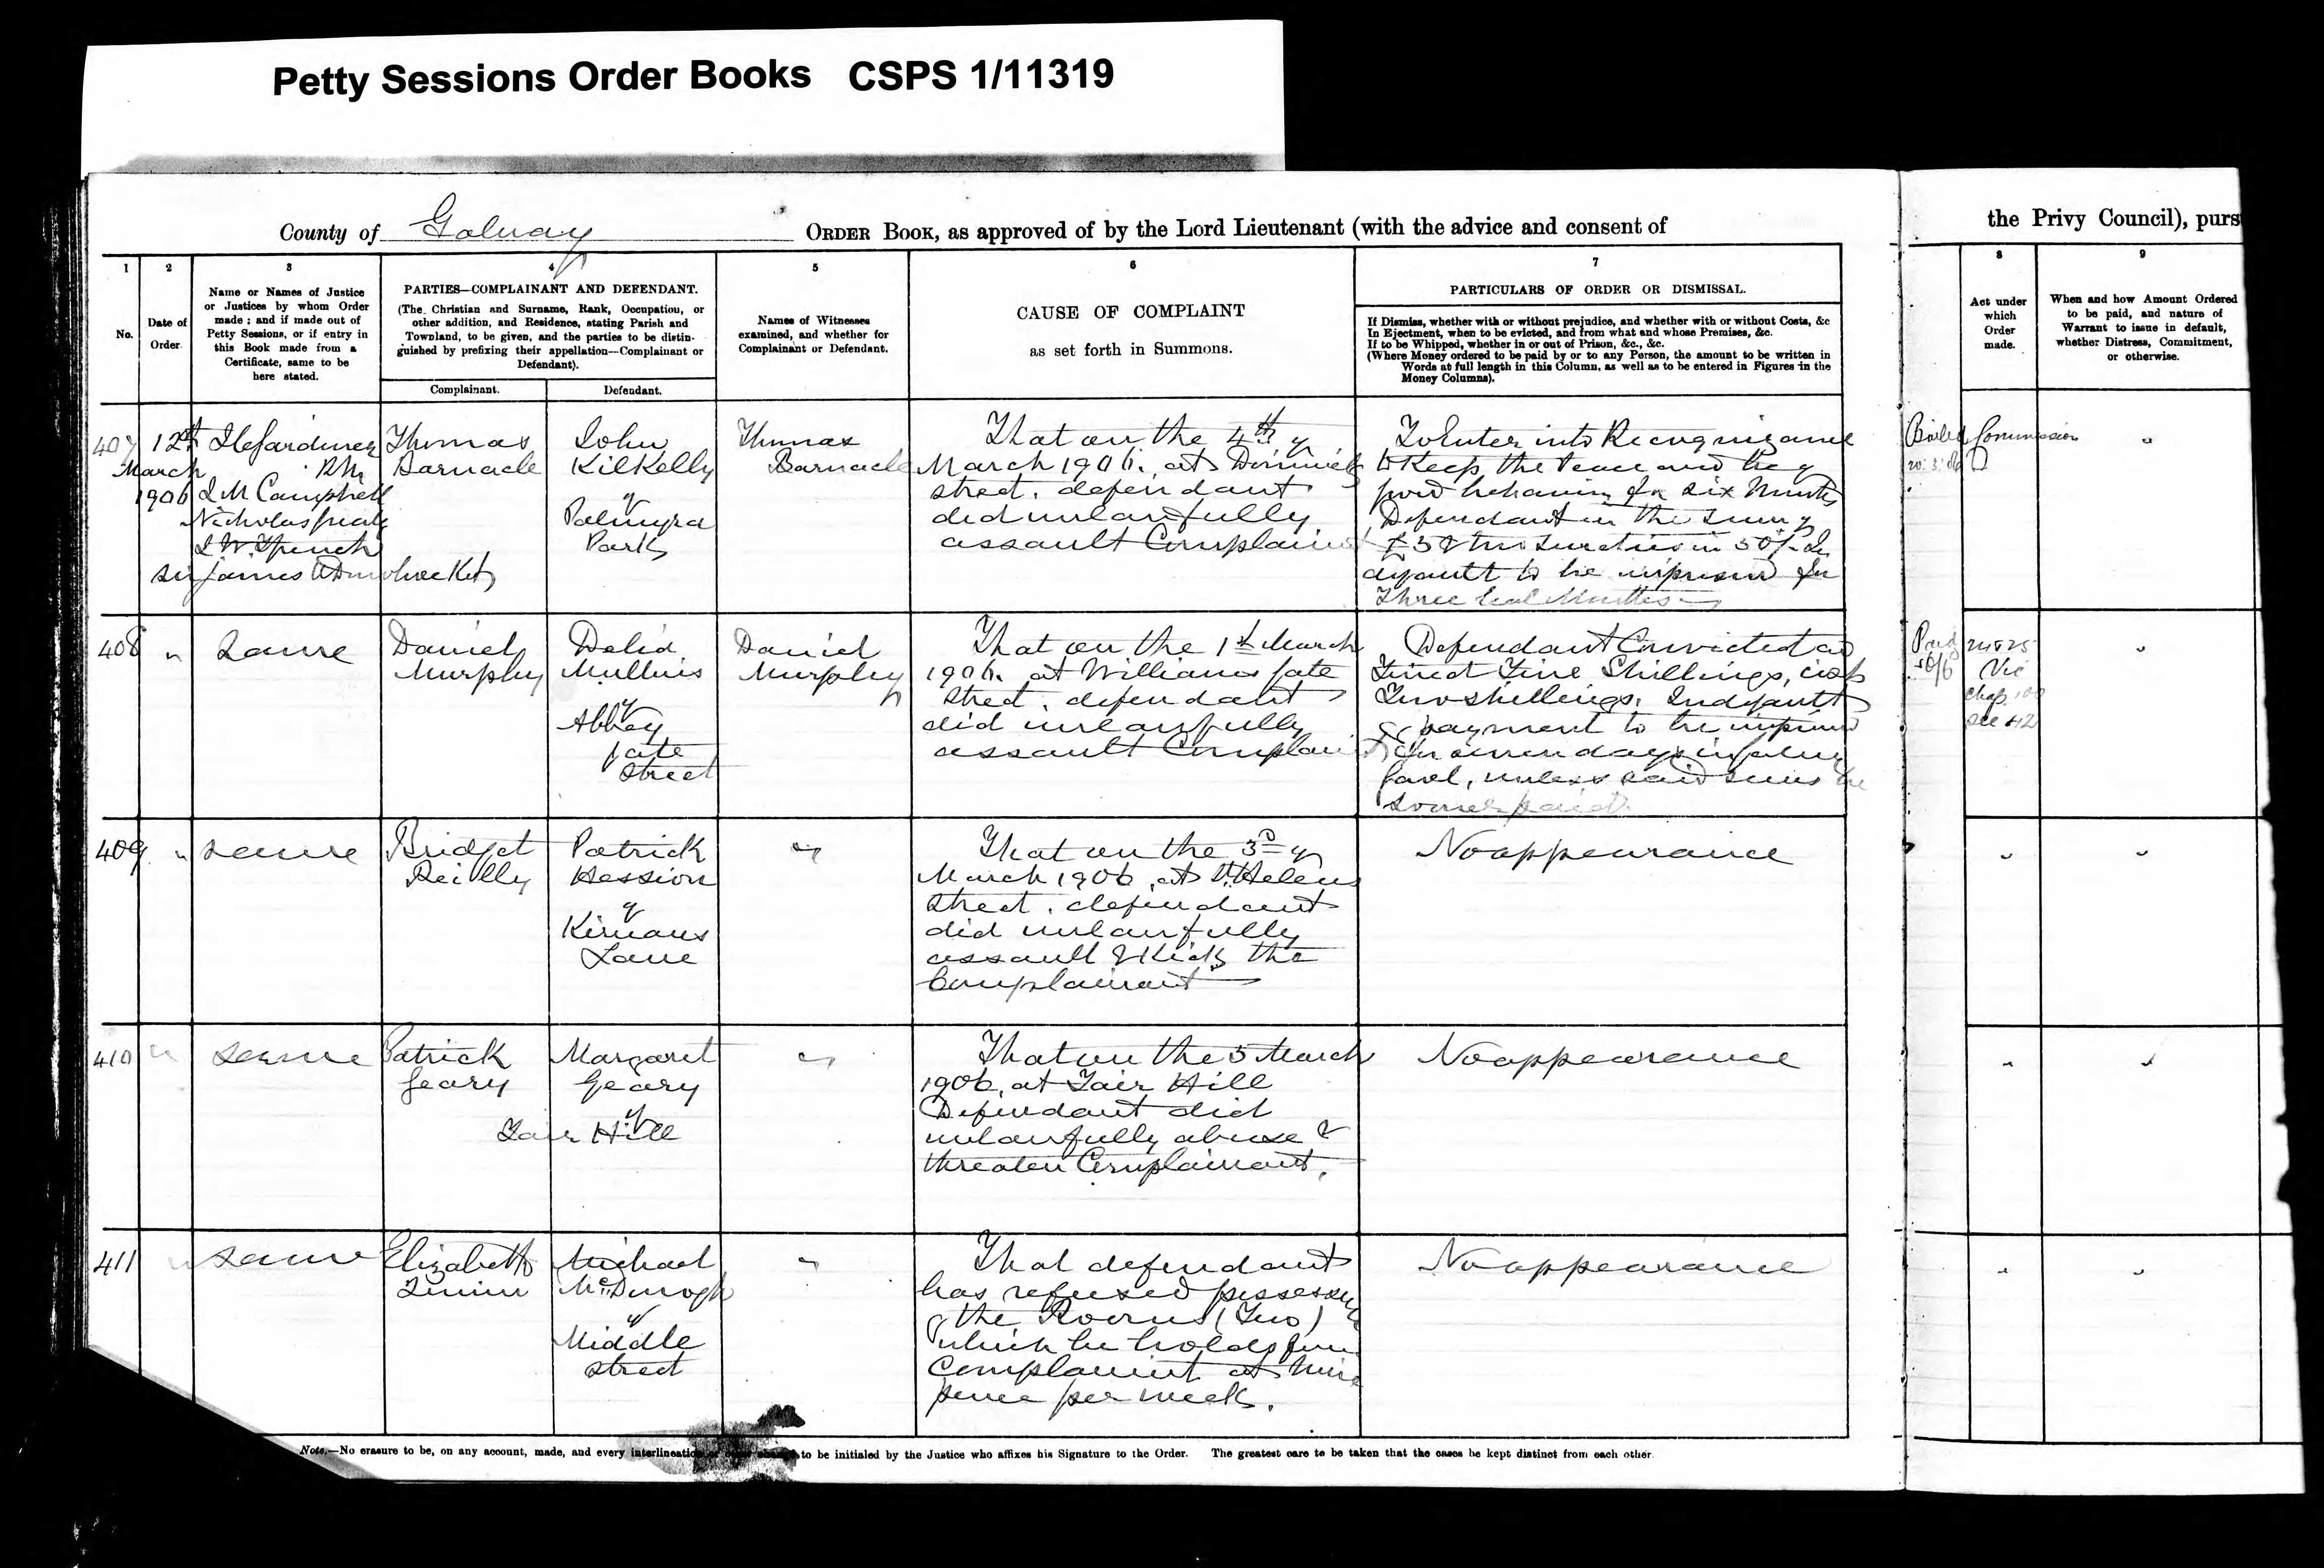 Petty Sessions Order Books CSPS 1/11319
County of Galway ORDER BOOK, as approved of by the Lord Lieutenant (with the advice and consent of
the Privy Council), purs
1
No.
2
Date of
Order
3
Name or Names of Justice
or Justices by whom Order
made ; and if made out of
Petty Sessions, or if entry in
this Book made from a
Certificate, same to be
here stated.
4
PARTIES—COMPLAINANT AND DEFENDANT.
(The Christian and Surname, Rank, Occupation, or
other addition, and Residence, stating Parish and
Townland, to be given, and the parties to be distin-
guished by prefixing their appellation—Complainant or
Defendant).
Complainant.
Defendant.
5
Names of Witnesses
examined, and whether for
Complainant or Defendant.
6
CAUSE OF COMPLAINT
as set forth in Summons.
7
PARTICULARS OF ORDER OR DISMISSAL.
If Dismiss, whether with or without prejudice, and whether with or without Costs, &c
In Ejectment, when to be evicted, and from what and whose Premises, &c.
If to be Whipped, whether in or out of Prison, &c., &c.
(Where Money ordered to be paid by or to any Person, the amount to be written in
Words at full length in this Column, as well as to be entered in Figures in the
Money Columns).
8
Act under
which
Order
made.
9
When and how Amount Ordered
to be paid, and nature of
Warrant to issue in default,
whether Distress, Commitment,
or otherwise.
407
12th
March
1906
Gardiner
RM
Campbell
Nicholas
Sir James
Thomas
Barnacle
John
Kilkelly
of
Palmyra
Park
Thomas
Barnacle
That on the 4th of
March 1906. at Dominick
street. defendant
did unlawfully
assault Complainant
To Enter into Recognizance
to Keep the Peace and be of
good behaviour for six Months
Defendant in the sum of
£5 & two sureties in 50/- In
default to be imprisoned for
Three Cal Months
Bailed
Commission
408
"
Same
Daniel
Murphy
Delia
Mullins
of
Abbey
gate
street
Daniel
Murphy
That on the 1st March
1906. at Williams gate
Street. defendant
did unlawfully
assault Complainant
Defendant Convicted and
Fined Five Shillings, costs
Two shillings. In default
of payment to be imprisoned
for seven days in Galway
Gaol, unless said sums be
sooner paid.
Paid
24 & 25
Vic
Chap. 100
sec 42
"
409
"
same
Bridget
Reilly
Patrick
Hession
of
Kirwans
Lane
"
That on the 3rd of
March 1906, at St Helens
street. defendant
did unlawfully
assault & Kick the
Complainant
No appearance
"
"
410
"
same
Patrick
Geary
Margaret
Geary
of
Fair Hill
"
That on the 5 March
1906, at Fair Hill
Defendant did
unlawfully abuse &
threaten Complainant.
No appearance
"
"
411
"
same
Elizabeth
Michael
McDonogh
of
Middle
street
"
That defendant
has refused possession
of the Rooms (Two)
which he holds from
Complainant at Nine
pence per week.
No appearance
"
"
Note.—No erasure to be, on any account, made, and every interlineation to be initialed by the Justice who affixes his Signature to the Order. The greatest care to be taken that the cases be kept distinct from each other.